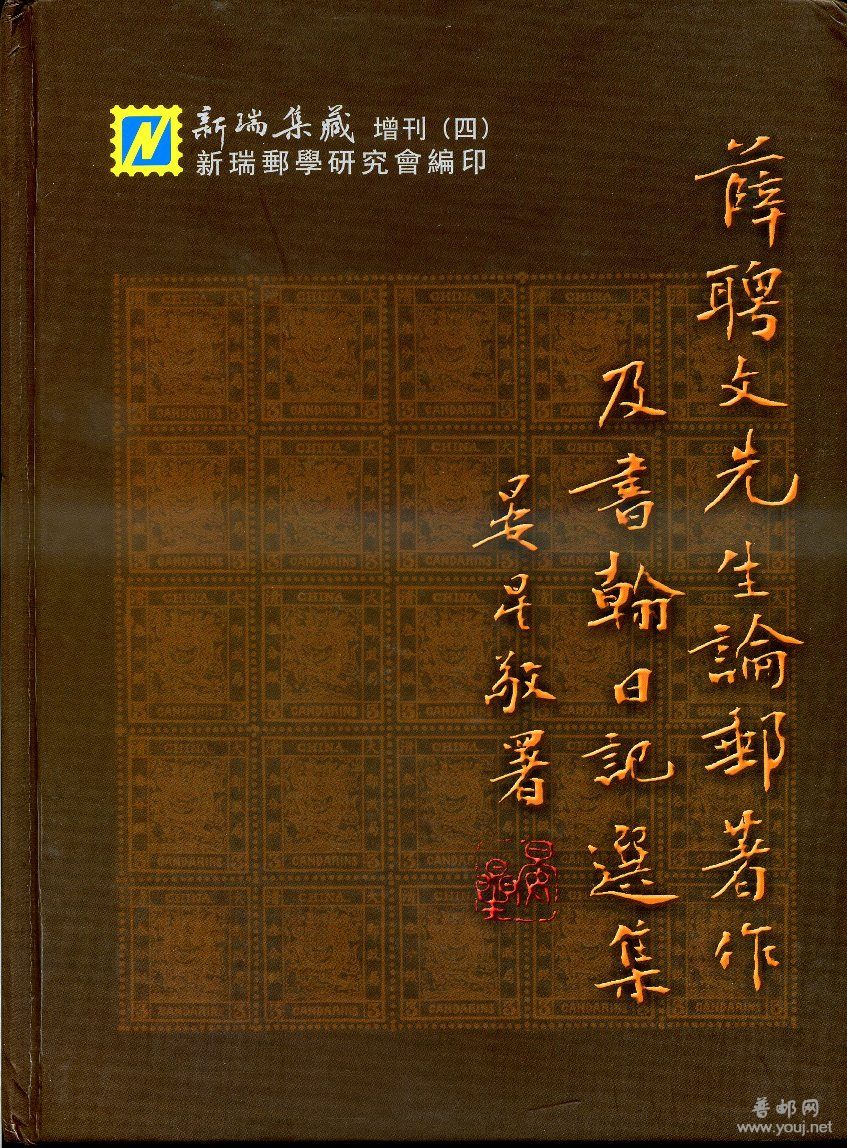 新瑞集藏 增刊（四）
新瑞郵學研究會編印
薛聘文先生論郵著作
及書翰日記選集
晏星敬署
晏星
CHINA
大
清
CANDARINS
3
普邮网
www.youj.net